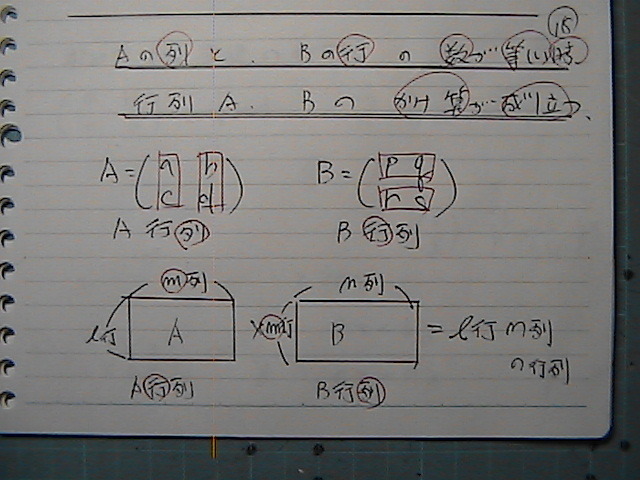 Aの列と、Bの行の数が等しい時
行列A、Bのかけ算が成り立つ、
A=(a b c d) B=(p q r s)
A行列 B行列
m列 n列
l行 A ×m行 B =l行n列
の行列
A行列 B行列